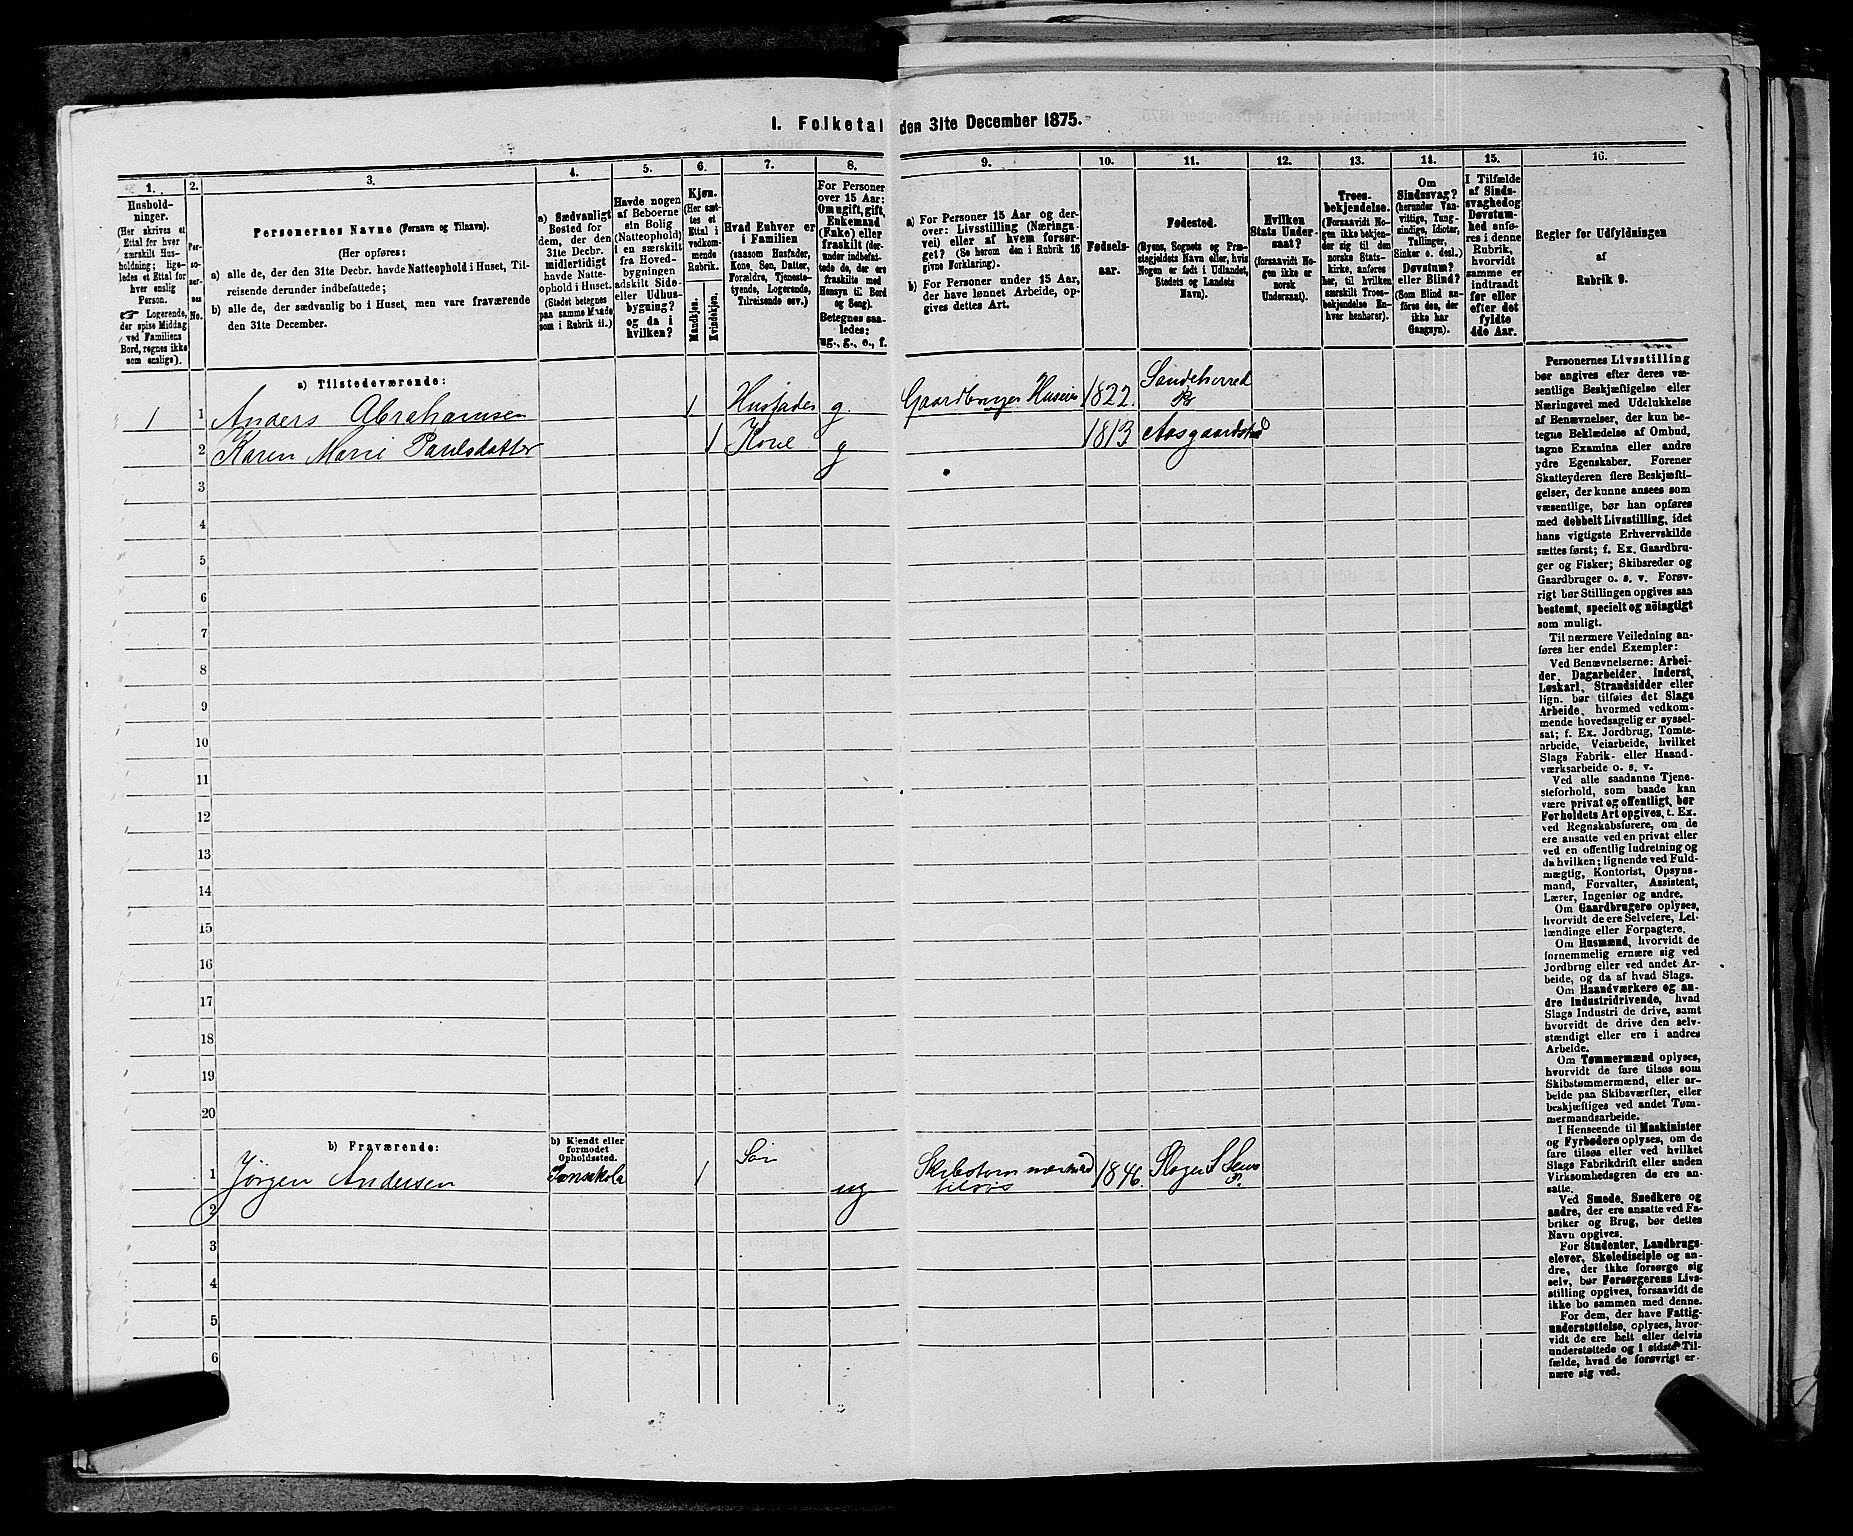 I. Folketal den 31te December 1875.
1.
Hushold-
ninger.
(Her skrives et
Ettal for hver
særskilt Hus-
holdning; lige-
ledes et Ettal for
hver enslig
Person.
Logerende,
der spise Middag
ved Familiens
Bord, regnes ikke
som enslige).
2.
Per-
so-
ner-
nes
No.
3.
Personernes Navne (Fornavn og Tilnavn).
(Her opføres:
a) alle de, der den 31te Decbr. havde Natteophold i Huset, Til-
reisende derunder indbefattede;
b) alle de, der sædvanlig bo i Huset, men vare fraværende
den 31te December.
4.
a) Sædvanligt
Bosted for
dem, der den
31te Decbr.
midlertidigt
havde Natte-
ophold i Huset.
(Stedet betegnes
paa samme Maade
som i Rubrik 11.)
5.
Havde nogen
af Beboerne
sin Bolig
(Natteophold)
i en særskilt
fra Hoved-
bygningen
adskilt Side-
eller Udhus-
bygning?
og da i
hvilken?
6.
Kjøn.
(Her sæt-
tes et
Ettal i
vedkom-
mende
Rubrik.
Mandkjøn.
Kvindekjøn.
7.
Hvad Enhver er
i Familien
(saasom Husfader,
Kone, Søn, Datter,
Forældre, Tjeneste-
tyende, Logerende,
Tilreisende osv.)
8.
For Personer
over 15 Aar:
Om ugift, gift,
Enkemand
(Enke) eller
fraskilt (der-
under indbefat-
tede de, der ere
fraskilte med
Hensyn til Bord
og Seng).
Betegnes saa-
ledes:
ug., g., e., f.
9.
a) For Personer 15 Aar og der-
over: Livsstilling (Nærings-
vei) eller af hvem forsør-
get? (Se herom den i Rubrik 16
givne Forklaring).
b) For Personer under 15 Aar,
der have lønnet Arbeide, op-
gives dettes Art.
10.
Fødsels-
aar.
11.
Fødested.
(Byens, Sognets og Præ-
stegjeldets Navn eller, hvis
Nogen er født i Udlandet,
Stedets og Landets
Navn).
12.
Hvilken
Stats Under-
saat?
(forsaavidt No-
gen ikke er
norsk
Undersaat).
13.
Troes-
bekjendelse.
(Forsaavidt No-
gen ikke bekjen-
der sig til den
norske Stats-
kirke, anføres
her, til hvilken
særskilt Troes-
bekjendelse En-
hver henhører).
14.
Om
Sindssvag?
(herunder Van-
vittige, Tung-
sindige, Idioter,
Tullinger,
Sinker o. desl.)
Døvstum?
eller Blind?
(Som Blind an-
føres den, der
ikke har
Gangsyn).
15.
I Tilfælde
af Sinds-
svaghed og
Døvstum-
hed anfø-
res i denne
Rubrik,
hvorvidt
samme er
indtraadt
før eller
efter det
fyldte
4de Aar.
16.
Regler for Udfyldningen
af
Rubrik 9.
a) Tilstedeværende:
1 1 Anders Abrahamsen 1 Husfader g. Gaardbruger Huseier 1822. Sandeherred Pr
2 Karen Marie Paulsdatter 1 Kone g 1813 Aasgaardstrand
3
4
5
6
7
8
9
10
11
12
13
14
15
16
17
18
19
20
b) Fraværende:
b) Kjendt eller
formodet
Opholdssted.
1 Jørgen Andersen 1 Søn ug Skibstømmermand tilsøs 1846. Slagen
2
3
4
5
6
Personernes Livsstilling
bør angives efter deres væ-
sentlige Beskjæftigelse eller
Næringsvei med Udelukkelse
af Benævnelser, der kun be-
tegne Beklædelse af Ombud,
tagne Examina eller andre
ydre Egenskaber. Forener
Skatteyderen flere Beskjæfti-
gelser, der kunne ansees som
væsentlige, bør han opføres
med dobbelt Livsstilling, idet
hans vigtigste Erhvervskilde
sættes først; f. Ex. Gaardbru-
ger og Fisker; Skibsreder og
Gaardbruger o. s. v. Forøv-
rigt bør Stillingen opgives saa
bestemt, specielt og nöiagtigt
som muligt.
Til nærmere Veiledning an-
føres her endel Exempler:
Ved Benævnelserne: Arbei-
der, Dagarbeider, Inderst,
Løskarl, Strandsidder eller
lign. bør tilføies det Slags
Arbeide, hvormed vedkom-
mende hovedsagelig er syssel-
sat; f. Ex. Jordbrug, Tomte-
arbeide, Veiarbeide, hvilket
Slags Fabrik- eller Haand-
værksarbeide o. s. v.
Ved alle saadanne Tjene-
steforhold, som baade kan
være privat og offentligt, bør
Forholdets Art opgives, t. Ex.
ved Regnskabsførere, om de
ere ansatte ved en privat eller
ved en offentlig Indretning og
da hvilken; lignende ved Fuld-
mægtig, Kontorist, Opsyns-
mand, Forvalter, Assistent,
Lærer, Ingeniør og andre.
Om Gaardbrugere oplyses,
hvorvidt de ere Selveiere, Lei-
lændinge eller Forpagtere.
Om Husmænd, hvorvidt de
fornemmelig ernære sig ved
Jordbrug eller ved andet Ar-
beide, og da af hvad Slags.
Om Haandværkere og an-
dre Industridrivende, hvad
Slags Industri de drive, samt
hvorvidt de drive den selv-
stændigt eller ere i andres
Arbeide.
Om Tømmermænd oplyses,
hvorvidt de fare tilsøs som
Skibstømmermænd, eller ar-
beide paa Skibsværfter, eller
beskjæftiges ved andet Tøm-
mermandsarbeide.
I Henseende til Maskinister
og Fyrbødere oplyses, om de
fare tilsøs eller ved hvilket
Slags Fabrikdrift eller anden
Virksomhedsgren de ere an-
satte.
Ved Smede, Snedkere og
andre, der ere ansatte ved Fa-
briker og Brug, bør dettes
Navn opgives.
For Studenter, Landbrugs-
elever, Skoledisciple og an-
dre, der ikke forsørge sig
selv, bør Forsørgerens Livs-
stilling opgives, forsaavidt de
ikke bo sammen med denne.
For dem, der have Fattig-
understøttelse, oplyses, hvor-
vidt de ere helt eller delvis
understøttede og i sidste Til-
fælde, hvad de forøvrigt er-
nære sig ved.